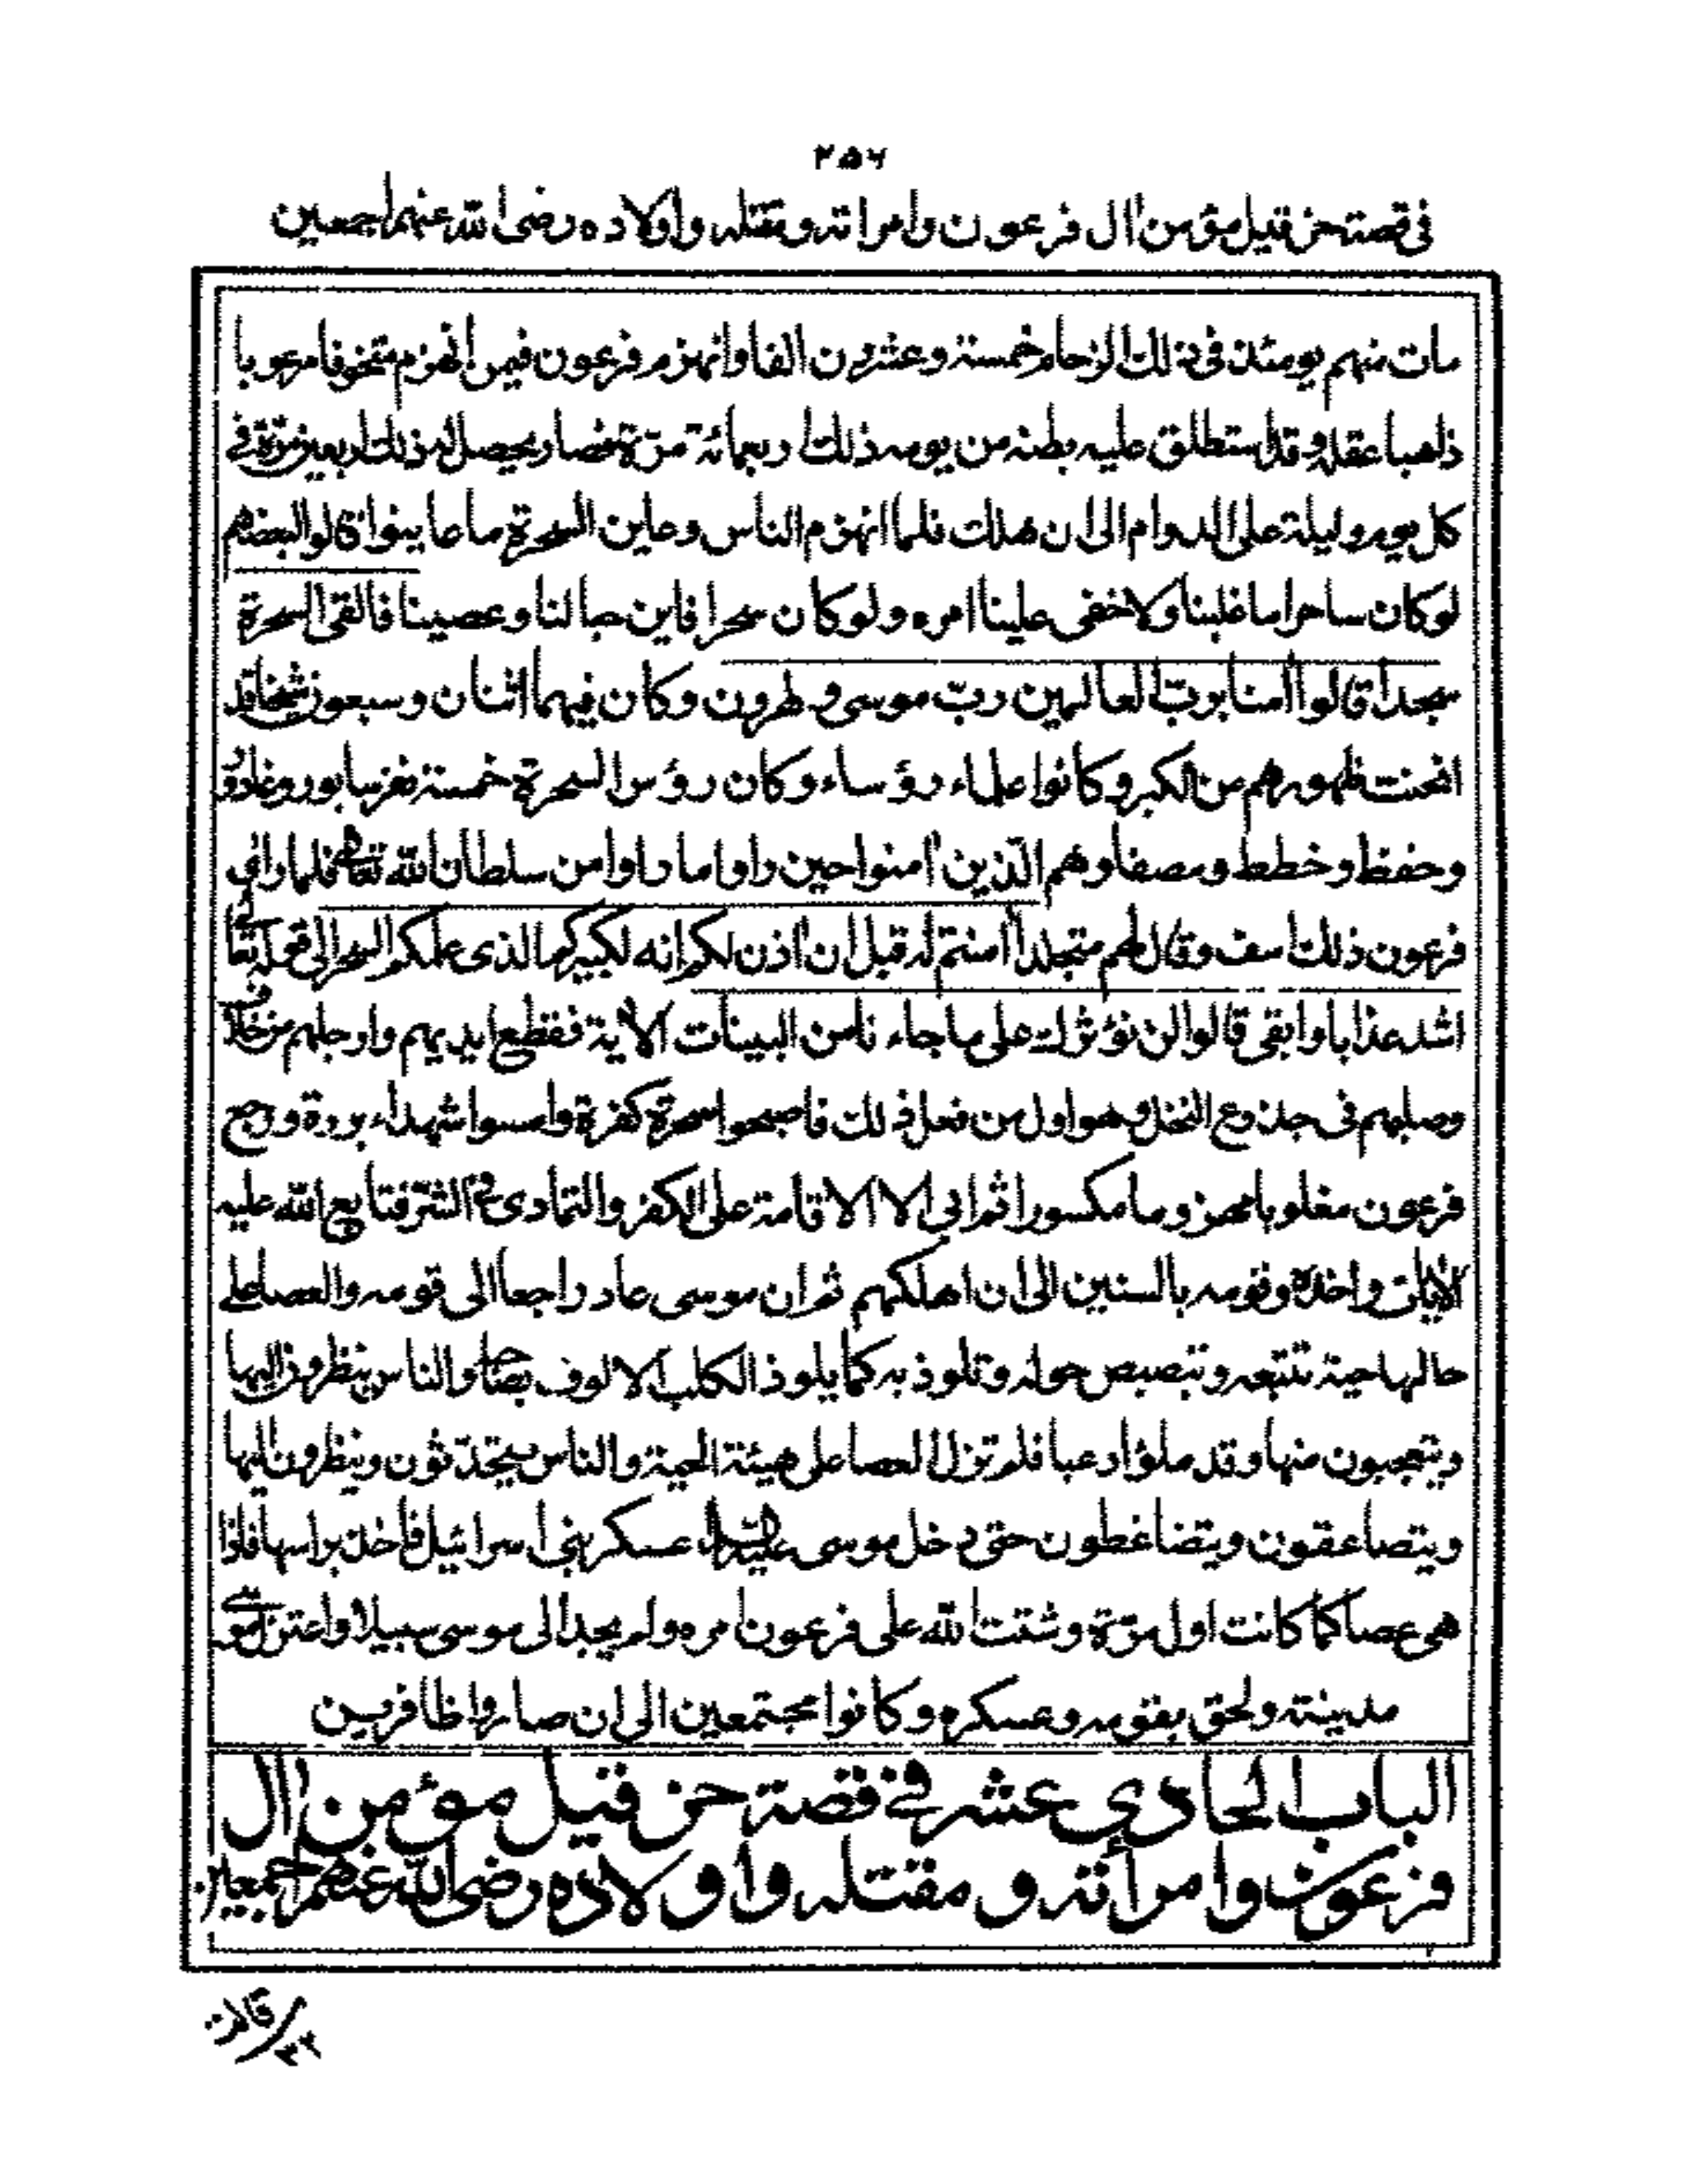 ٢٥٦
في قصة حزقيل مؤمن اٰل فرعون وامراته ومقتله واولاده رضى الله عنهم اجمعين
مات منهم يومئذ في ذلك الزحام خمسة وعشرون الفا وانهزم فرعون فيمن انهزم متخوفا مرعوبا
ذاهبا عقله وقد استطلق عليه بطنه من يومه ذلك اربعمائة مرّة فصار يحصل له ذلك اربعين مرّة في
كل يوم وليلة على الدوام الى ان هلك فلما انهزم الناس وعاين السحرة ما عاينوا قالوا لبعضهم
لو كان ساحرا ما غلبنا ولا خفى علينا امره ولو كان سحرا فاين حبالنا وعصينا فالقى السحرة
سجدا قالوا اٰمنا بربّ العالمين ربّ موسى وهٰرون وكان فيهم اثنان وسبعون شيخا قد
انحنت ظهورهم من الكبر وكانوا علماء رؤساء وكان رؤس السحرة خمسة نفر سابور وغادو
وحفظ وخطط ومصفا وهم الّذين اٰمنوا حين راوا ما راوا من سلطان الله تعالى فلما راى
فرعون ذلك اسف وقال لهم متجلدا اٰمنتم له قبل ان اٰذن لكم انه لكبيركم الذى علمكم السحر الى قوله تعالى
اشد عذابا وابقى قالوا لن نؤثرك على ما جاءنا من البينات الاٰية فقطع ايديهم وارجلهم من خلاف
وصلبهم فى جذوع النخل وهو اول من فعل ذلك فاصبحوا سحرة كفرة وامسوا شهداء بررة ورجع
فرعون مغلوبا مهزوما مكسورا ثم ابى الا الاقامة على الكفر والتمادى فى الشرّ فتابع الله عليه
الاٰيات واخذه وقومه بالسنين الى ان اهلكهم ثم ان موسى عاد راجعا الى قومه والعصا على
حالها حية تتبعه وتبصبص حوله وتلوذ به كما يلوذ الكلب الالوف بصاحبه والناس ينظرون اليها
ويتعجبون منها وقد ملئوا رعبا فلم تزل العصا على هيئة الحية والناس يتحدّثون وينظرون اليها
ويتصاعقون ويتضاغطون حتى دخل موسى عليه السلام عسكر بنى اسرائيل فاخذ براسها فاذا
هى عصا كما كانت اول مرّة وشتت الله على فرعون امره ولم يجد الى موسى سبيلا واعتزل موسى
مدينة ولحق بقومه وعسكره وكانوا مجتمعين الى ان صاروا ظافرين
الباب الحادي عشر في قصة حزقيل مؤمن اٰل
فرعون وامرأته ومقتله واولاده رضى الله عنهم اجمعين